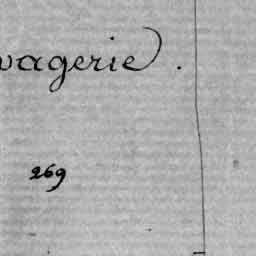 vagerie.
269